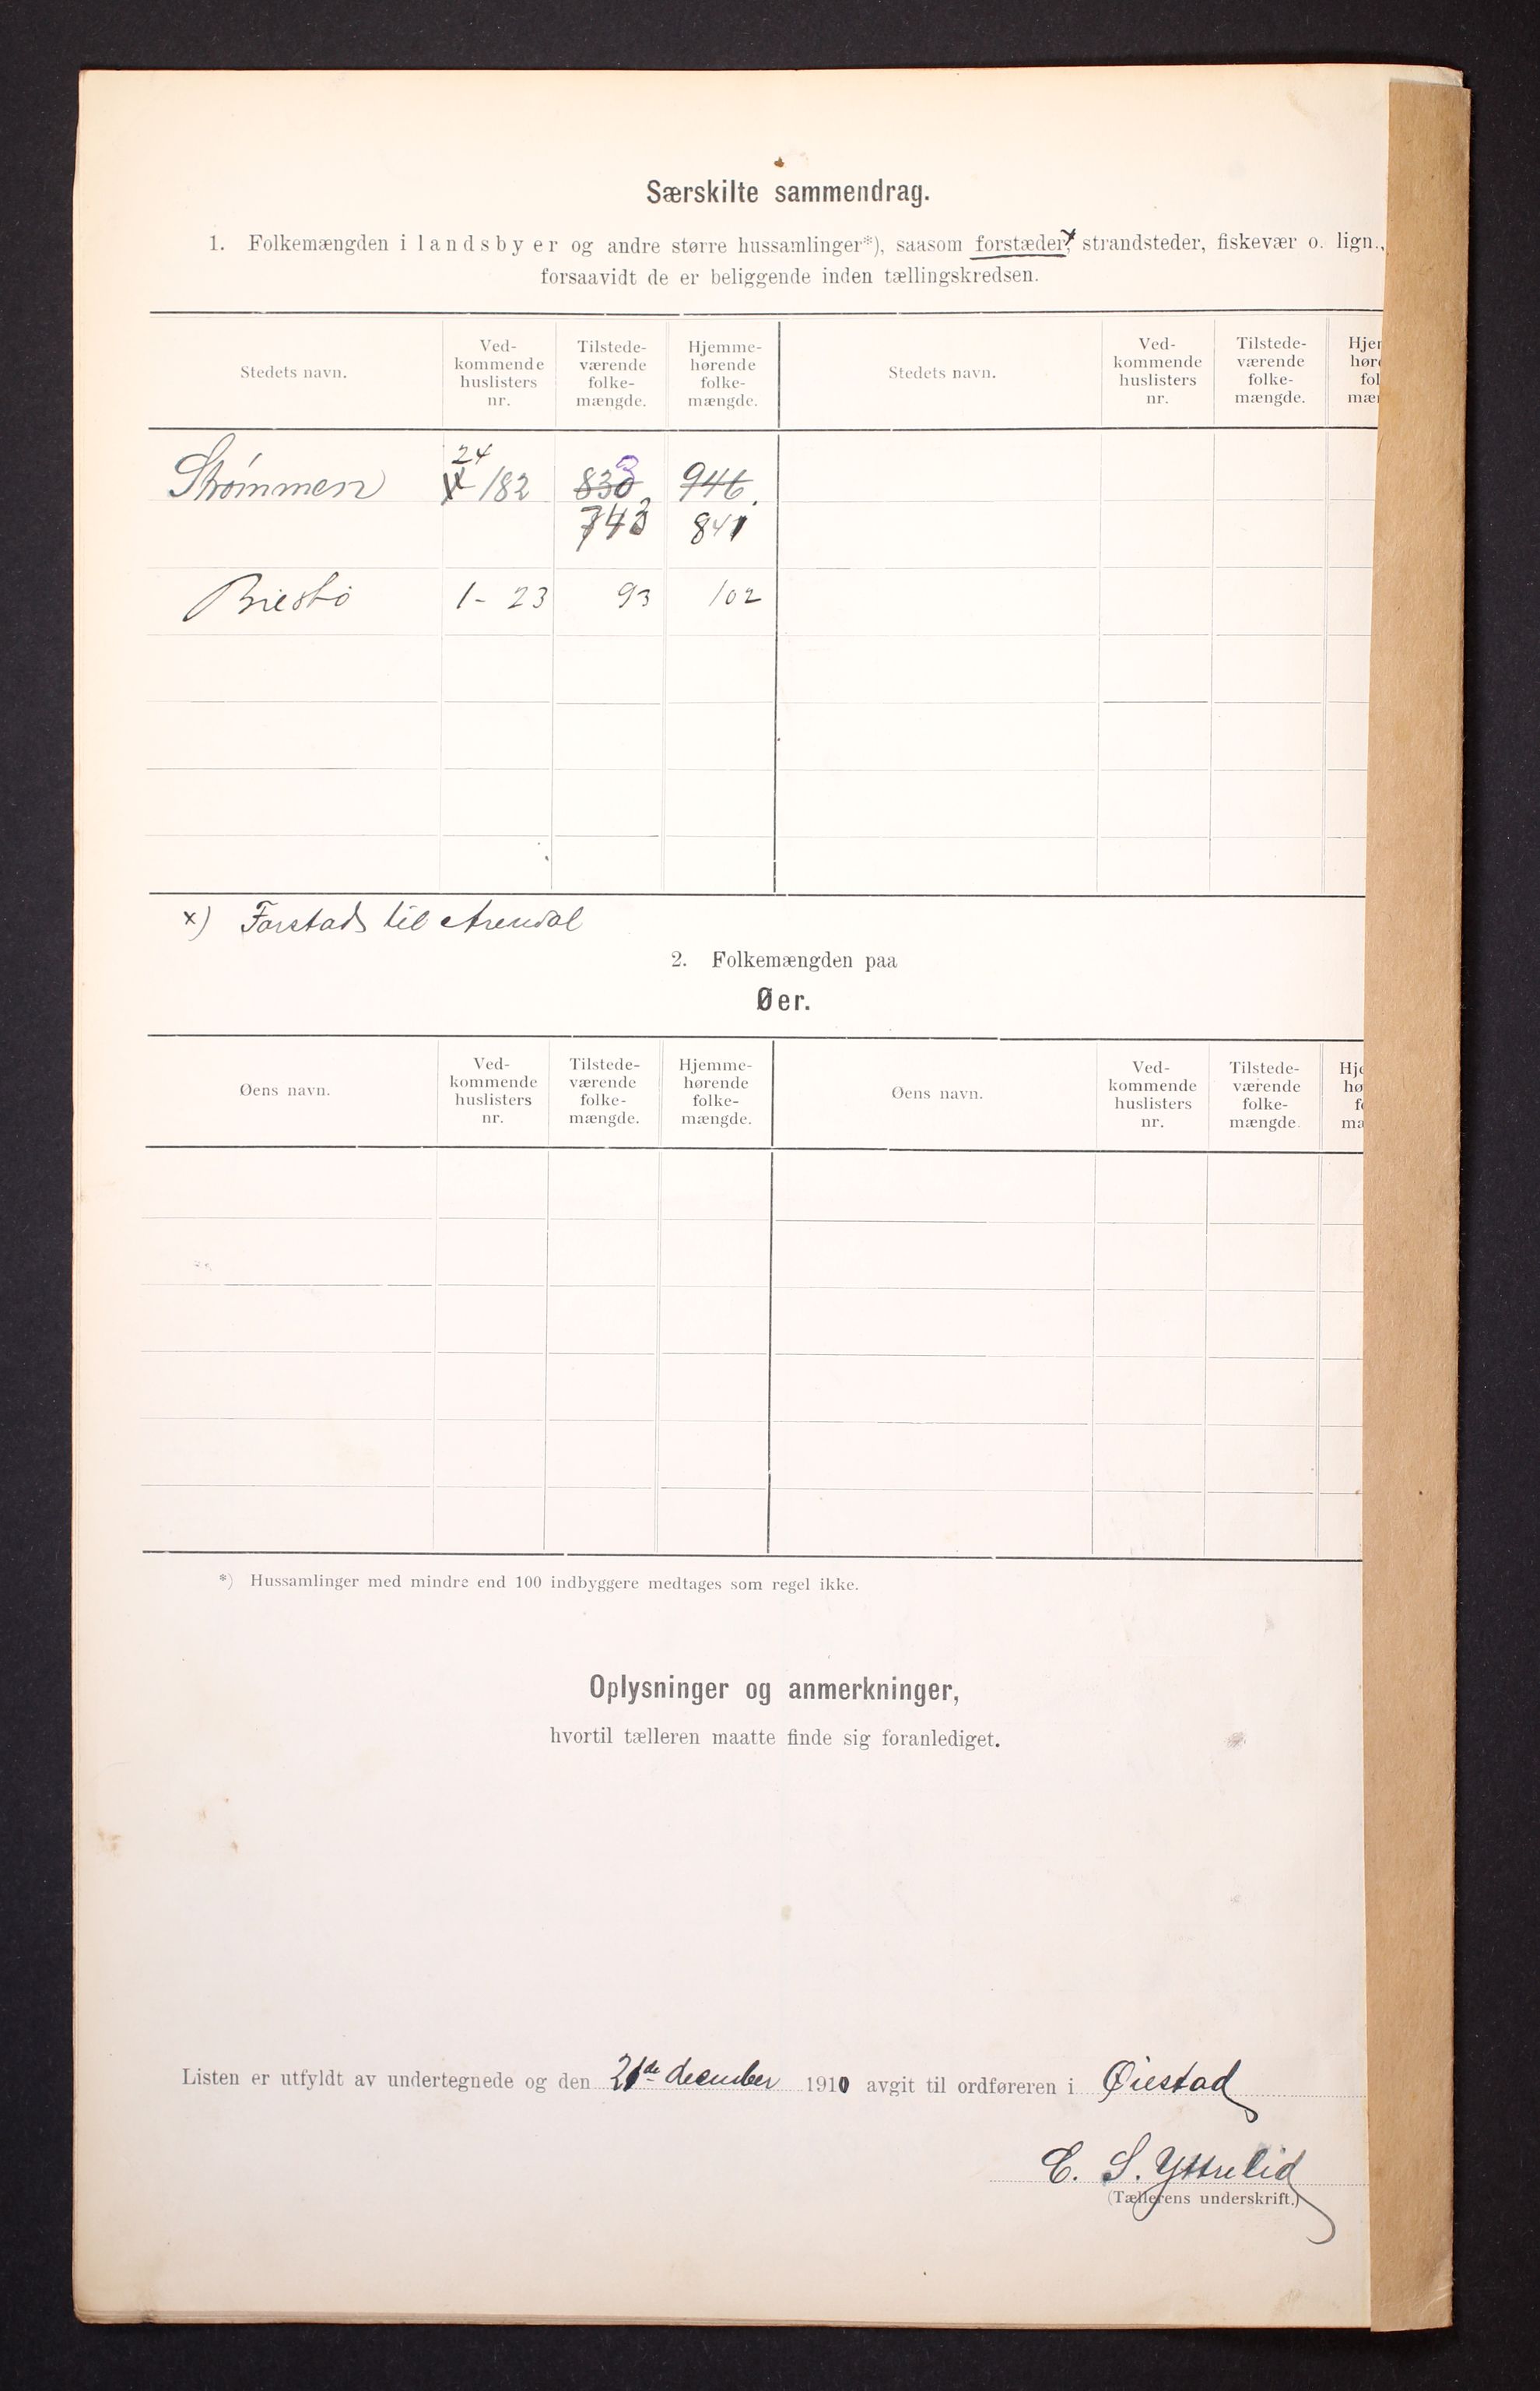 Særskilte sammendrag.
1. Folkemængden i landsbyer og andre større hussamlinger*), saasom forstæder,x strandsteder, fiskevær o. lign.,
forsaavidt de er beliggende inden tællingskredsen.
Stedets navn.
Ved-
kommende
huslisters
nr.
Tilstede-
værende
folke-
mængde.
Hjemme-
hørende
folke-
mængde.
Stedets navn.
Ved-
kommende
huslisters
nr.
Tilstede-
værende
folke-
mængde.
Hjem
høre
fol
mæn
24
Strømmen 182 946.
743 841
1 - 23 93 102
x) Forstads til Arendal
2. Folkemængden paa
Øer.
Øens navn.
Ved-
kommende
huslisters
nr.
Tilstede-
værende
folke-
mængde.
Hjemme-
hørende
folke-
mængde.
Øens navn.
Ved-
kommende
huslisters
nr.
Tilstede-
værende
folke-
mængde.
Hje
hø
fo
mæ
*) Hussamlinger med mindre end 100 indbyggere medtages som regel ikke.
Oplysninger og anmerkninger,
hvortil tælleren maatte finde sig foranlediget.
Listen er utfyldt av undertegnede og den 21de december 1910 avgit til ordføreren i Øiestad
E. S. Yttrelid
(Tællerens underskrift.)